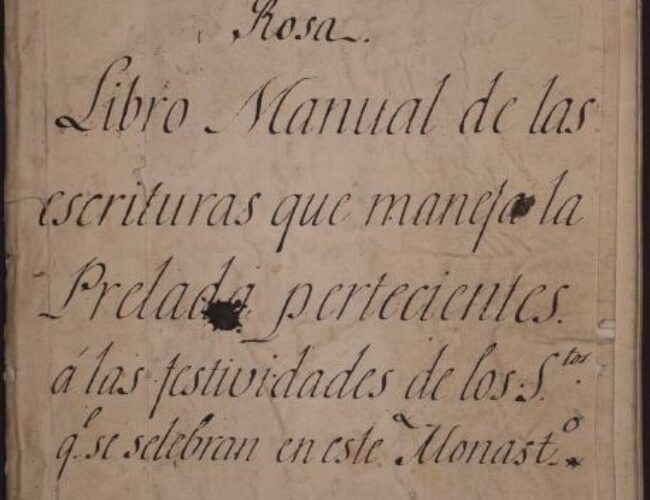 Rosa.
Libro Manual de las
escrituras que maneja la
Prelada pertecientes.
á las festividades de los S.tos.
q.e se selebran en este Monast.o